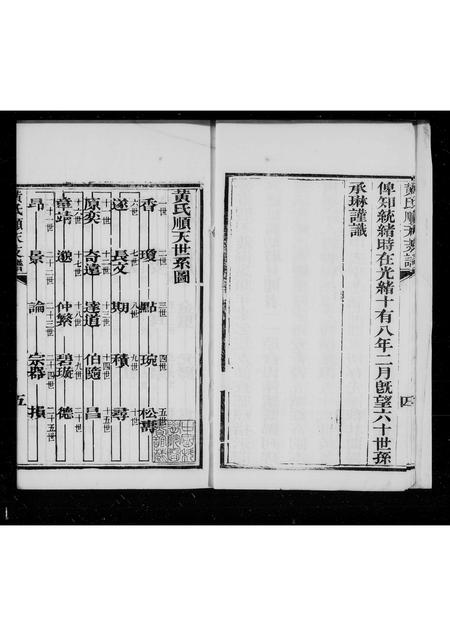 黃氏順天支譜
四
俾知統緒時在光緒十有八年二月既望六十世孫
承琳謹識
黃氏順天世系圖
一世 二世 三世 四世 五世
香 瓊 點 琬 松壽
六世 七世 八世 九世 十世
遂 長文 積 尋
十一世 十二世 十三世 十四世 十五世
原奕 奇遠 達道 伯隨 昌
十六世 十七世 十八世 十九世 二十世
童靖 邈 仲繁 碧璇 德
二十一世 二十二世 二十三世 二十四世 二十五世
昂 景 論 宗郡 損
黃氏順天支譜
五